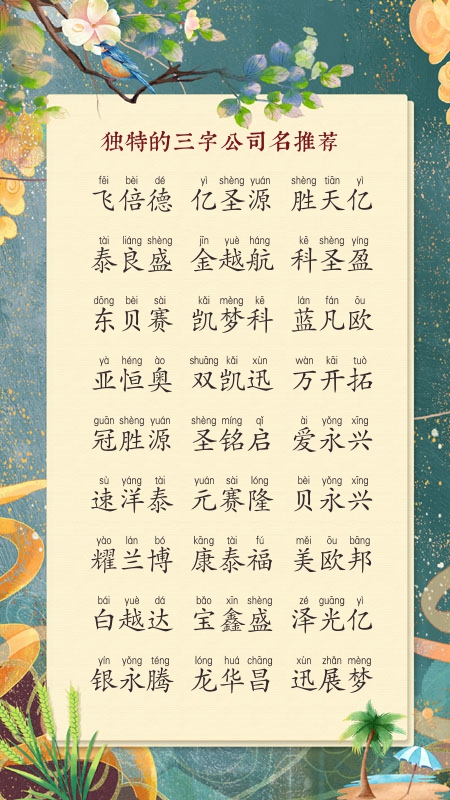 独特的三字公司名推荐
fēi bèi dé yì shèng yuán shèng tiān yì
飞倍德 亿圣源 胜天亿
tài liáng shèng jīn yuè háng kē shèng yíng
泰良盛 金越航 科圣盈
dōng bèi sài kǎi mèng kē lán fán ōu
东贝赛 凯梦科 蓝凡欧
yà héng ào shuāng kǎi xùn wàn kāi tuò
亚恒奥 双凯迅 万开拓
guān shèng yuán shèng míng qǐ ài yǒng xīng
冠胜源 圣铭启 爱永兴
sù yáng tài yuán sài lóng bèi yǒng xīng
速洋泰 元赛隆 贝永兴
yào lán bó kāng tài fú měi ōu bāng
耀兰博 康泰福 美欧邦
bái yuè dá bǎo xīn shèng zé guāng yì
白越达 宝鑫盛 泽光亿
yín yǒng téng lóng huá chāng xùn zhǎn mèng
银永腾 龙华昌 迅展梦